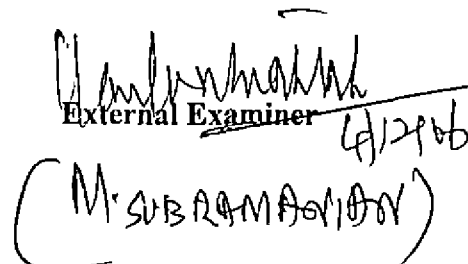 External Examiner
4/12/06
(M. SUBRAMANIAN)